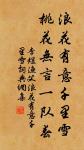 浪花有意千里雪
桃花無言一队春
李煜漁父 浪花有意千
里雪詞